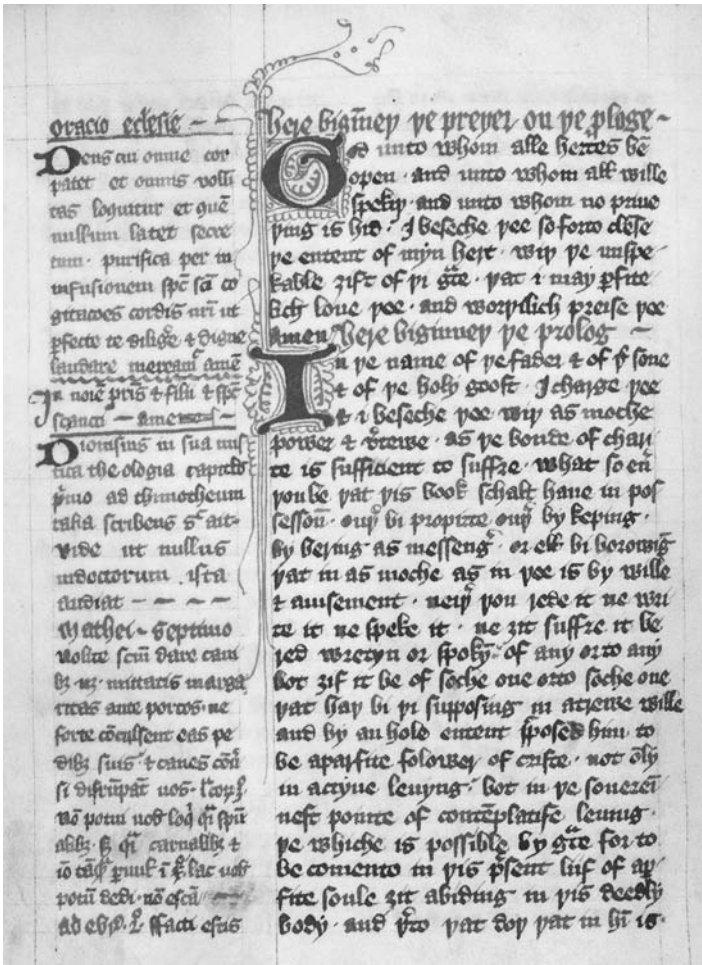 oracio eclesie
Deus cui omne cor
patet et omnis volū
tas loquitur et quē
nullum latet secre
tum · purifica per in
infusionem spc̄ sc̄i co
gitacōes cordis nr̄i ut
ꝑfecte te dilig̉e & digne
laudare mereamͬ amē
In noīe pr̄is & filii & spc̄
sc̄anctī – amen –
Dionisius in sua mis
tica theologia capitulo
pͥmo ad thimotheum
talia scribens sͨ ait·
vide ut nullus
indoctorum ista
audiat – – – –
Mathei – septimo
Nolite sc̄m̄ dare cani
bꝫ nꝫ · mittatis marga
ritas ante porcos · ne
forte cōculsent eas pe
dibꝫ suis & canes cōū
si disrūpāt uos ·
nō potui uob̄ loqͥ qͣi spūa
libꝫ · sꝫ qͣi carnalibꝫ &
lac uob̄
potū dedi · nō escā
ad ebͬ · ffacti estis
Here bigīney ye preyer on ye ꝓloge –
God unto whom alle hertes bē
open · and unto whom all wille
spekiy · and unto whom no priue
ying is hid · I beseche yee so forto clēse
ye entent of myn hert · wiy ye unspe
kable ȝift of yi gͣce · yat i may ꝑfite
lich loue yee · and woryilich preise yee
amen Here biginney ye prolog –
In ye name of ye fader & of yͤ sone
& of ye holy goost · I charge yee
& i beseche yee wiy as moche
power & v̉tewe · as ye bonde of chari
te is sufficient to suffre · what so eū
you be yat yis book schalt haue in pos
session̄ · ouỷ bi propirte ouỷ by keping ·
by bering as messeng̉ · or ell bi borowīg
yat in as moche as in yee is by wille
& auisement · neiỷ you rede it ne wri
te it ne speke it · ne ȝit suffre it be
red wretyn or spokȳ · of any or to any
bot ȝif it be of soche one or to soche one
yat hay bi yi supposing in a trewe wille
and by an hole entent ꝓposed him to
be a parfite folower of criste · not ōly
in actyue leuyng · bot in ye souereī
nest pointe of contēplatife leuing ·
ye whiche is possible by gͣce for to
be comen to in yis p̄sent liif of a ꝑ
fite soule ȝit abiding in yis deedly
body · and ỷto yat doy yat in hī is ·